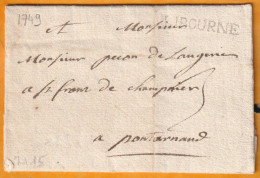 1749
LIBOURNE
A Monsieur
Monsieur pecon de Laugerie
a st front de champnier
a pontarnaud
15